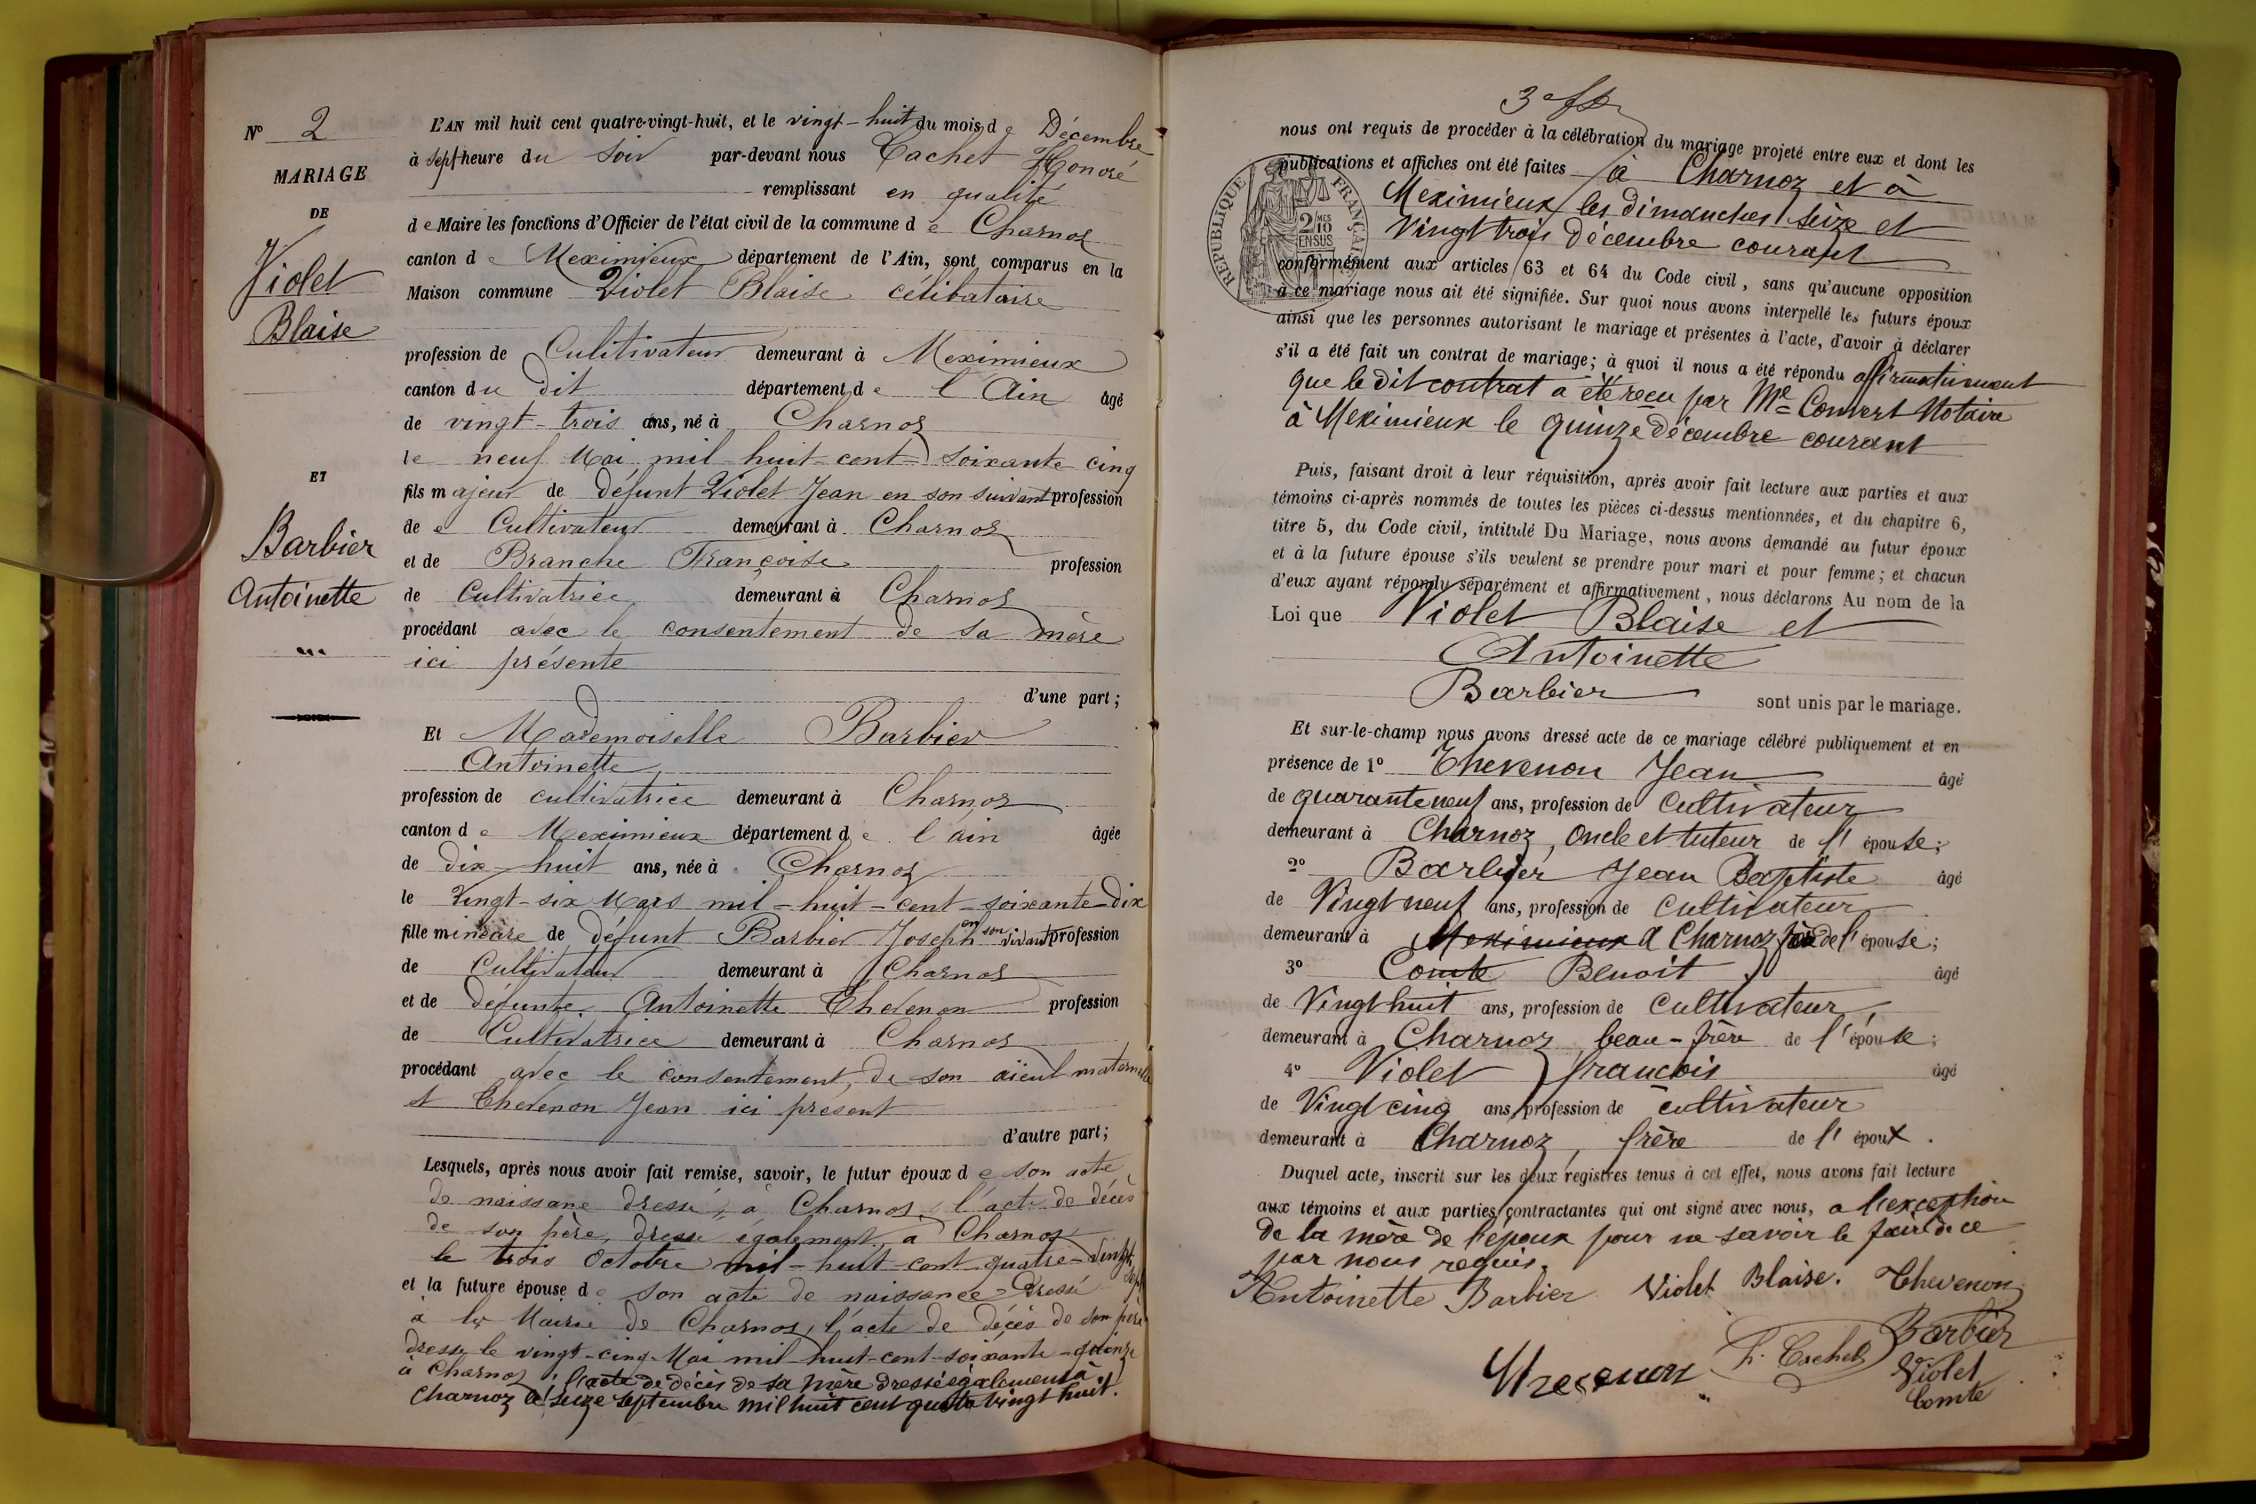 N° 2
MARIAGE
DE
Violet
Blaise
ET
Barbier
Antoinette
L'AN mil huit cent quatre-vingt-huit, et le vingt-huit du mois de Décembre
à sept heure du soir par-devant nous Cachet Honoré
remplissant en qualité
de Maire les fonctions d'Officier de l'état civil de la commune de Charnoz
canton de Meximieux département de l'Ain, sont comparus en la
Maison commune Violet Blaise célibataire
profession de Culitivateur demeurant à Meximieux
canton du dit département de l'Ain âgé
de vingt-trois ans, né à Charnoz
le neuf Mai mil-huit-cent-soixante cinq
fils majeur de défunt Violet Jean en son vivant profession
de Cultivateur demeurant à Charnoz
et de Branche Françoise profession
de Cultivatrice demeurant à Charnoz
procédant avec le consentement de sa mère
ici présente
d'une part;
Et Mademoiselle Barbier
Antoinette
profession de cultivatrice demeurant à Charnoz
canton de Meximieux département de l'ain âgée
de dix-huit ans, née à Charnoz
le Vingt-six Mars mil-huit-cent-soixante-Dix
fille mineure de défunt Barbier Joseph en son vivant profession
de Cultivateur demeurant à Charnoz
et de défunte Antoinette Thevenon profession
de Cultivatrice demeurant à Charnoz
procédant avec le consentement, de son aïeul maternel
Thevenon Jean ici présent
d'autre part;
Lesquels, après nous avoir fait remise, savoir, le futur époux de son acte
de naissane dressé à Charnoz, l'acte de décès
de son père, dressé également à Charnoz
le trois Octobre mil-huit-cent-quatre-Vingt-sept
et la future épouse de son acte de naissance Dressé
à la Mairie de Charnoz, l'acte de décès de son père
dressé le vingt-cinq Mai mil-huit-cent-soixante-quinze
à Charnoz, l'acte de décès de sa mère dressé également à
Charnoz le seize septembre mil huit cent quatre vingt huit.
3e
nous ont requis de procéder à la célébration du mariage projeté entre eux et dont les
publications et affiches ont été faites à Charnoz et à
Meximieux les dimanches seize et
Vingt trois décembre courant
RÉPUBLIQUE FRANÇAISE
2 MES
10
EN SUS
conformément aux articles 63 et 64 du Code civil, sans qu'aucune opposition
à ce mariage nous ait été signifiée. Sur quoi nous avons interpellé les futurs époux
ainsi que les personnes autorisant le mariage et présentes à l'acte, d'avoir à déclarer
s'il a été fait un contrat de mariage; à quoi il nous a été répondu affirmativement
que le dit contrat a été reçu par Me Convert Notaire
à Meximieux le quinze décembre courant
Puis, faisant droit à leur réquisition, après avoir fait lecture aux parties et aux
témoins ci-après nommés de toutes les pièces ci-dessus mentionnées, et du chapitre 6,
titre 5, du Code civil, intitulé Du Mariage, nous avons demandé au futur époux
et à la future épouse s'ils veulent se prendre pour mari et pour femme; et chacun
d'eux ayant répondu séparément et affirmativement, nous déclarons Au nom de la
Loi que Violet Blaise et
Antoinette
Barbier sont unis par le mariage.
Et sur-le-champ nous avons dressé acte de ce mariage célébré publiquement et en
présence de 1° Thevenon Jean âgé
de quarante neuf ans, profession de cultivateur
demeurant à Charnoz, oncle et tuteur de l'épouse;
2° Barbier Jean Baptiste âgé
de Vingt neuf ans, profession de cultivateur
demeurant à Meximieux à Charnoz frère de l'épouse;
3° Comte Benoit âgé
de Vingt huit ans, profession de cultivateur,
demeurant à Charnoz beau-frère de l'épouse;
4° Violet françois âgé
de Vingt cinq ans, profession de cultivateur
demeurant à Charnoz, frère de l'époux.
Duquel acte, inscrit sur les deux registres tenus à cet effet, nous avons fait lecture
aux témoins et aux parties contractantes qui ont signé avec nous, a l'exception
de la mère de l'époux pour ne savoir le faire de ce
par nous requis.
Antoinette Barbier Violet Blaise. Thevenon
Barbier
h. Cachet
Violet
Comte